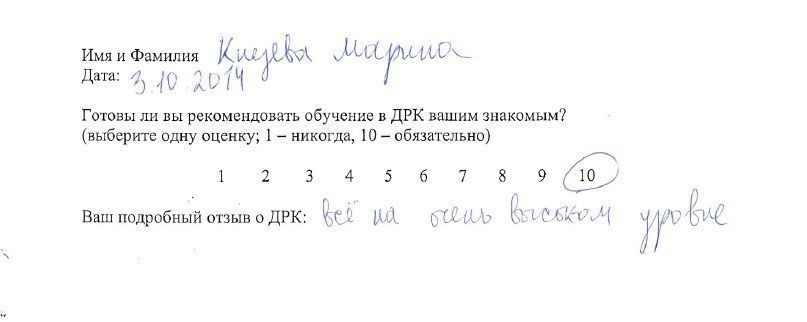 Имя и Фамилия Князева Марина
Дата: 3.10.2014
Готовы ли вы рекомендовать обучение в ДРК вашим знакомым?
(выберите одну оценку; 1 – никогда, 10 – обязательно)
1 2 3 4 5 6 7 8 9 10
Ваш подробный отзыв о ДРК: всё на очень высоком уровне